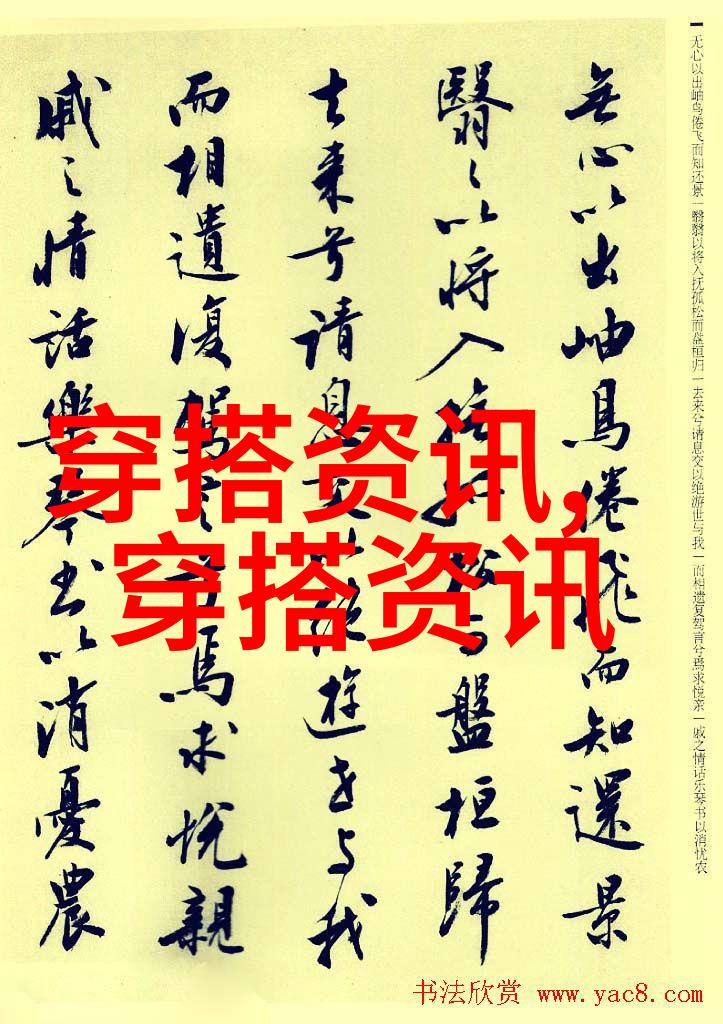 无心以出岫鸟倦飞而知还景一翳翳以将入抚孤松而盘桓归一去来兮请息交以绝游世与我一而相遗复驾言兮焉求悦亲一戚之情话乐琴书以消忧农
無心以出岫鳥倦飛而知還景
翳々以将入撫孤松而盤桓歸
去来兮请息交以绝遊世与我
而相遺復駕言兮焉求悦親
戚之情話樂琴书以消憂農
穿搭资讯,
穿搭资讯
书法欣赏 www.yac8.com